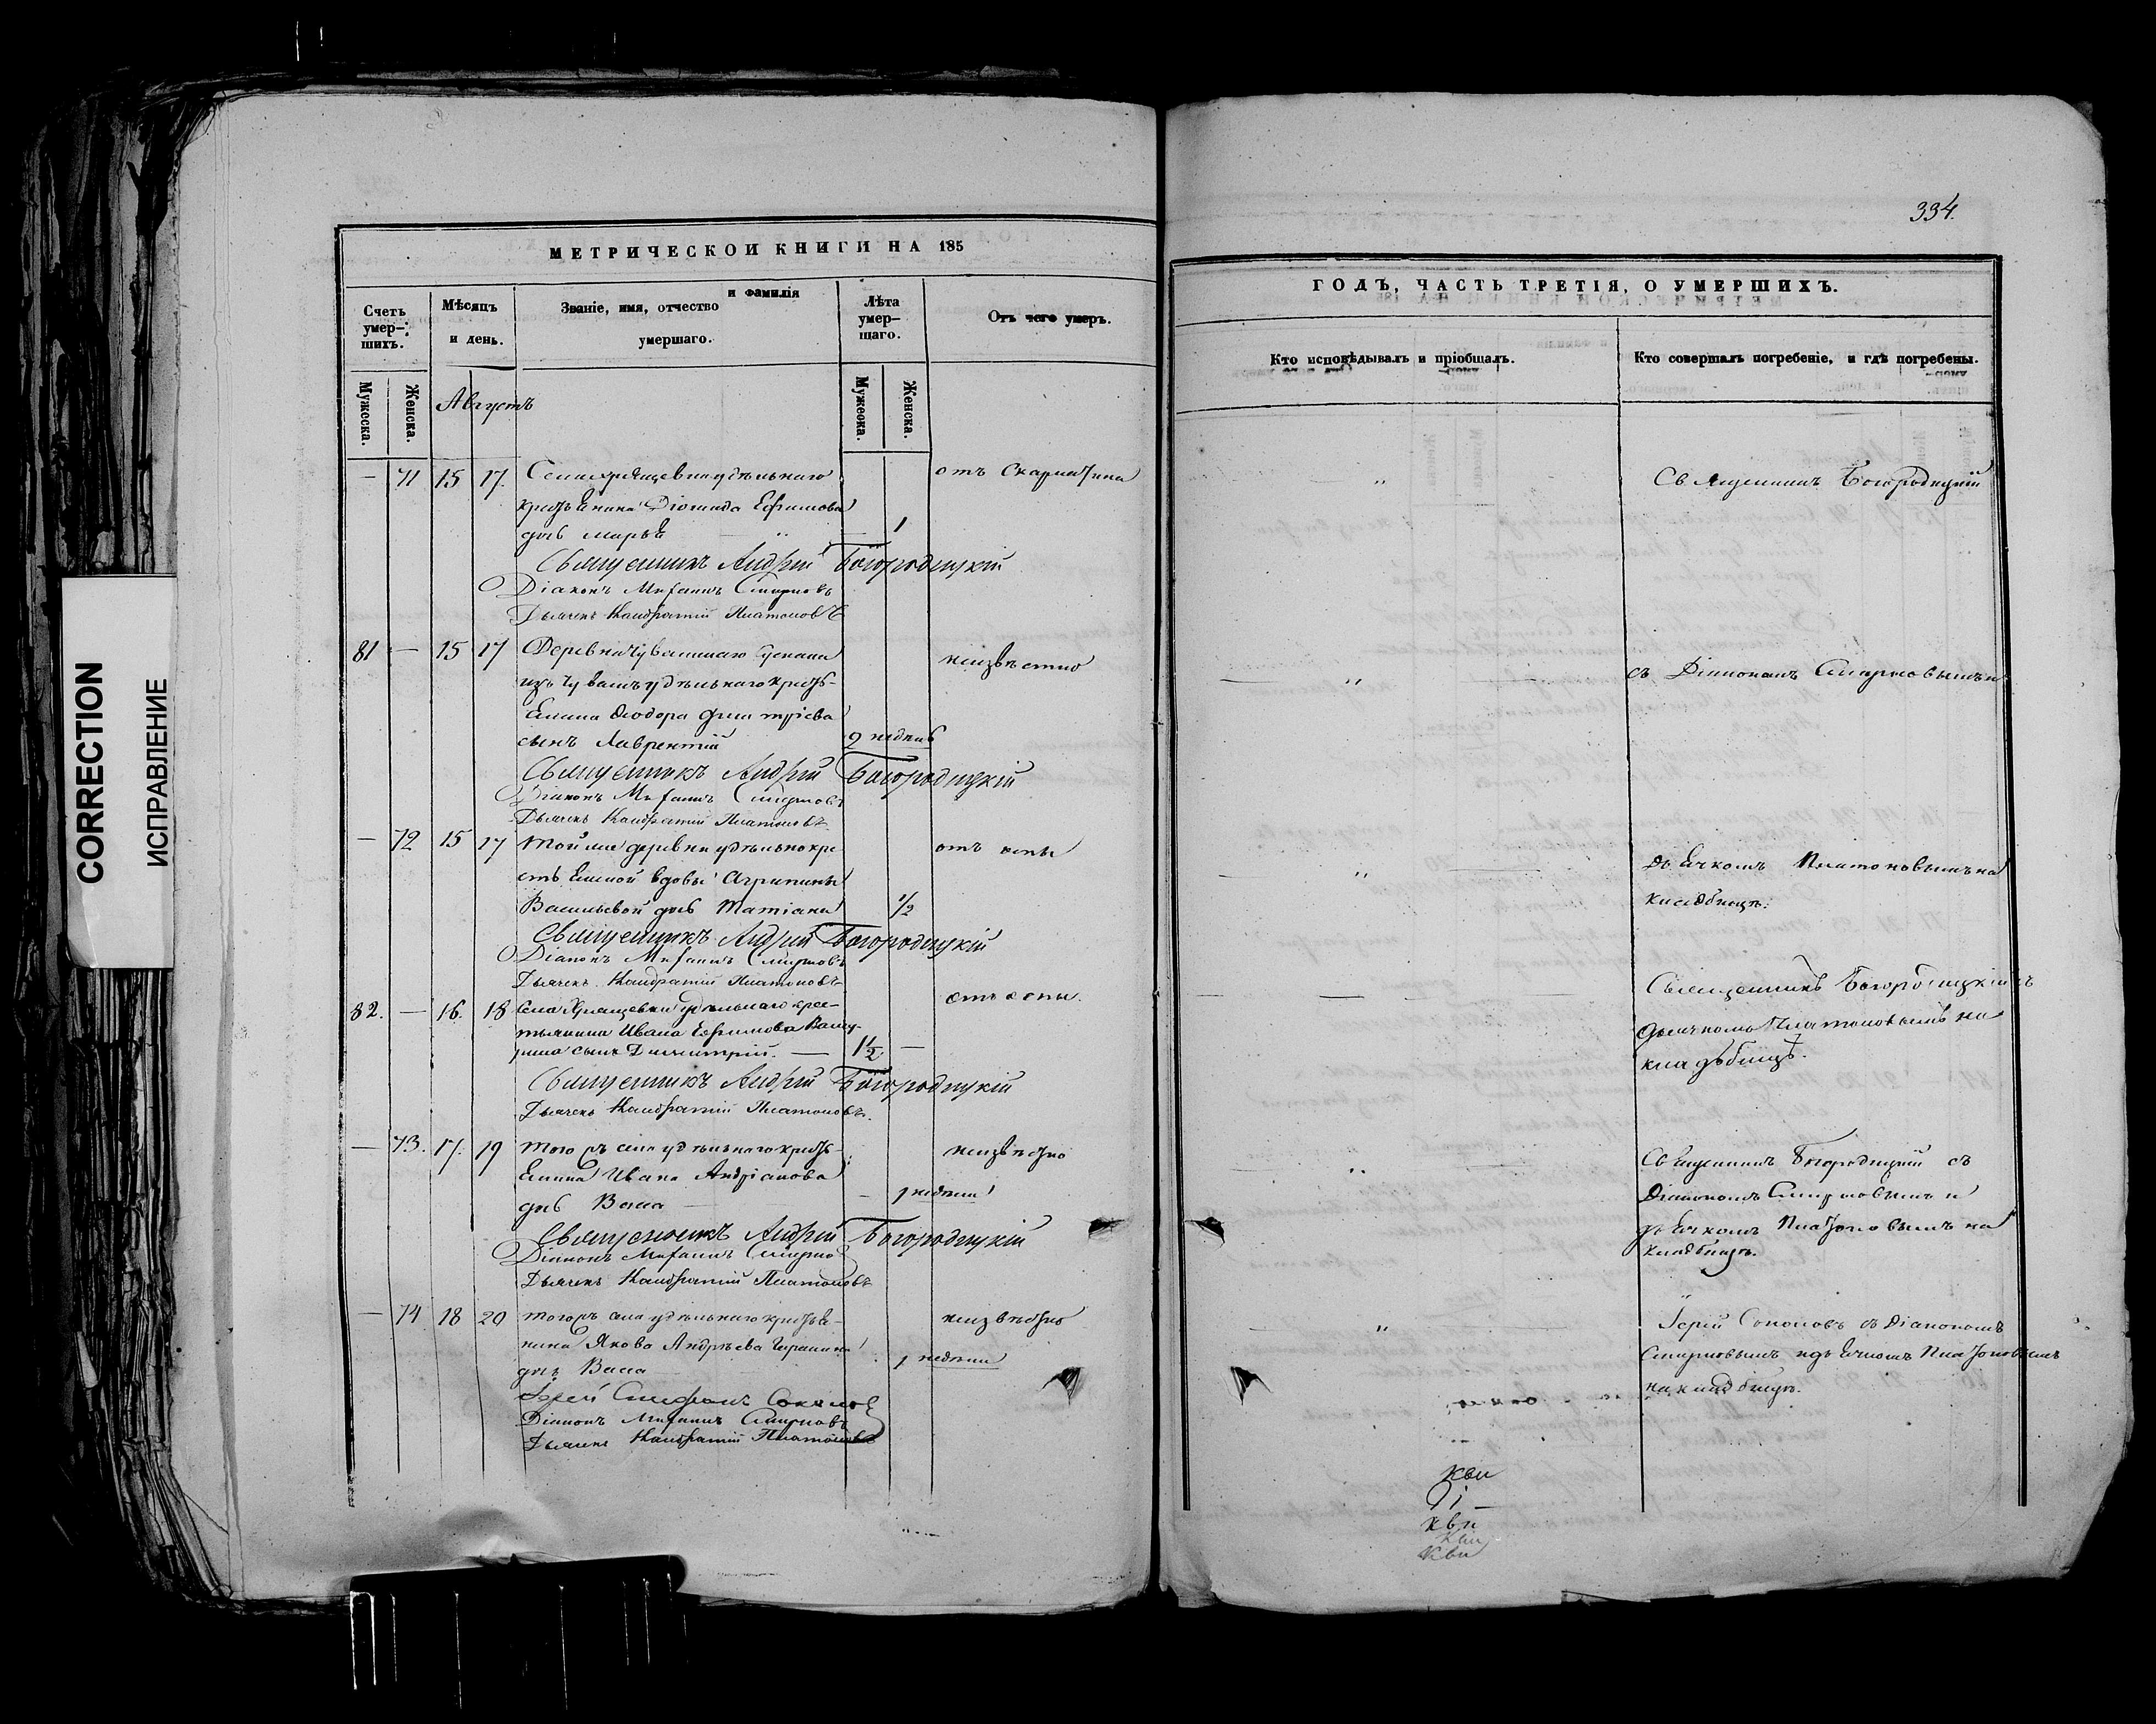 CORRECTION
ИСПРАВЛЕНИЕ
МЕТРИЧЕСКОЙ КНИГИ НА 185
Счетъ умер-шихъ.
Мѣсяцъ и день.
Званіе, имя, отчество и фамилія умершаго.
Лѣта умер-шаго.
Отъ чего умеръ.
Мужеска.
Женска.
Августъ
Мужеска.
Женска.
— 71 15 17. Села Крящевки удѣльнаго отъ Скарлатина
Діомида Ефимова
дчь Марья — 1
Священникъ Андрей Богородицкій
Діаконъ Смирновъ
Дьячекъ Кондратій Платоновъ
81 — 15 17 Деревни неизвѣстно
изъ Чувашъ удѣльнаго кресть-
янина Ѳеодора Дмитріева
сынъ Лаврентій 2 недѣль
Священникъ Андрей Богородицкій
Діаконъ Смирновъ
Дьячекъ Кондратій Платоновъ
— 72 15 17 Той же деревни удѣльной кре отъ оспы
стьянской вдовы Агрипины
Васильевой дчь Татіана 1/2
Священникъ Андрей Богородицкій
Діаконъ Смирновъ
Дьячекъ Кондратій Платоновъ
82. — 16. 18 Села Крящевки удѣльнаго кре- отъ оспы.
стьянина Ивана Ефимова
сынъ Димитрій. — 1 1/2 —
Священникъ Андрей Богородицкій
Дьячекъ Кондратій Платоновъ.
— 73. 17. 19 Того жъ села удѣльнаго кресть- неизвѣстно
янина Ивана Андріанова
дчь Васса — 1 недѣли
Священникъ Андрей Богородицкій
Діаконъ Смирновъ
Дьячекъ Кондратій Платоновъ
— 74 18 20 Того жъ села удѣльнаго крестья- неизвѣстно
нина Якова Андрѣева
дчь Васса 1 недѣли
Іерей Соколовъ
Діаконъ Смирновъ
Дьячекъ Кондратій Платоновъ
334.
ГОДЪ, ЧАСТЬ ТРЕТІЯ, О УМЕРШИХЪ.
Кто исповѣдывалъ и пріобщалъ.
Кто совершалъ погребеніе, и гдѣ погребены.
Священникъ Богородицкій
съ Діакономъ Смирновымъ и
дьячкомъ Платоновымъ на
кладбищѣ.
Священникъ Богородицкій съ
дьячкомъ Платоновымъ на
кладбищѣ.
Священникъ Богородицкій съ
Діакономъ Смирновымъ и
дьячкомъ Платоновымъ на
кладбищѣ.
Іерей Соколовъ съ Діакономъ
Смирновымъ и дьячкомъ Платоновымъ
на кладбищѣ.